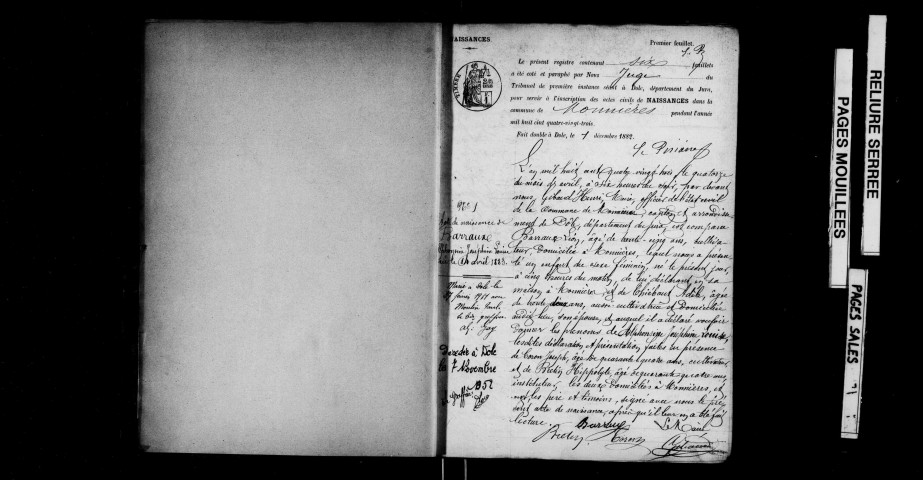 NAISSANCES
Premier feuillet.
Le présent registre contenant six feuillets
a été coté et paraphé par Nous Juge du
Tribunal de première instance séant à Dole, département du Jura,
pour servir à l'inscription des actes civils de NAISSANCES dans la
commune de Monnières pendant l'année
mil huit cent quatre-vingt-trois.
Fait double à Dole, le 1 décembre 1882.
TIMBRE
L'an mil huit cent quatre vingt trois, le quatorze
du mois d'avril, à six heures du soir, par devant
nous, Henri, Maire, officier de l'état civil
de la commune de Monnières, canton et arrondisse-
ment de Dôle, département du Jura, est comparu
Barraux Léon, âgé de trente-un ans, cultiva-
teur, domicilié à Monnières, lequel nous a présen-
té un enfant du sexe féminin, né le présent jour,
à cinq heures du matin, de lui déclarant, en sa
maison, à Monnières, et de Adèle, âgée
de trente deux ans, aussi cultivatrice et domiciliée
audit lieu, son épouse, et auquel il a déclaré vouloir
donner les prénoms de Alphonsine Joséphine Louise,
lesdites déclaration et présentation faites en présence
de Joseph, âgé de quarante quatre ans, cultivateur,
et de Hippolyte, âgé de quarante quatre ans,
instituteur, les deux domiciliés à Monnières, et
ont, les père et témoins, signé avec nous le pré-
sent acte de naissance, après qu'il leur en a été fait
lecture.
Barraux
Le Maire
N° 1
Acte de naissance de
Barraux
Alphonsine Joséphine Louise
le 14 avril 1883.
Marié à Dole le
1911 avec
le greffier
Décédée à Dole
le 7 Novembre
1952
Le greffier
RELIURE SERREE
PAGES MOUILLEES
PAGES SALES